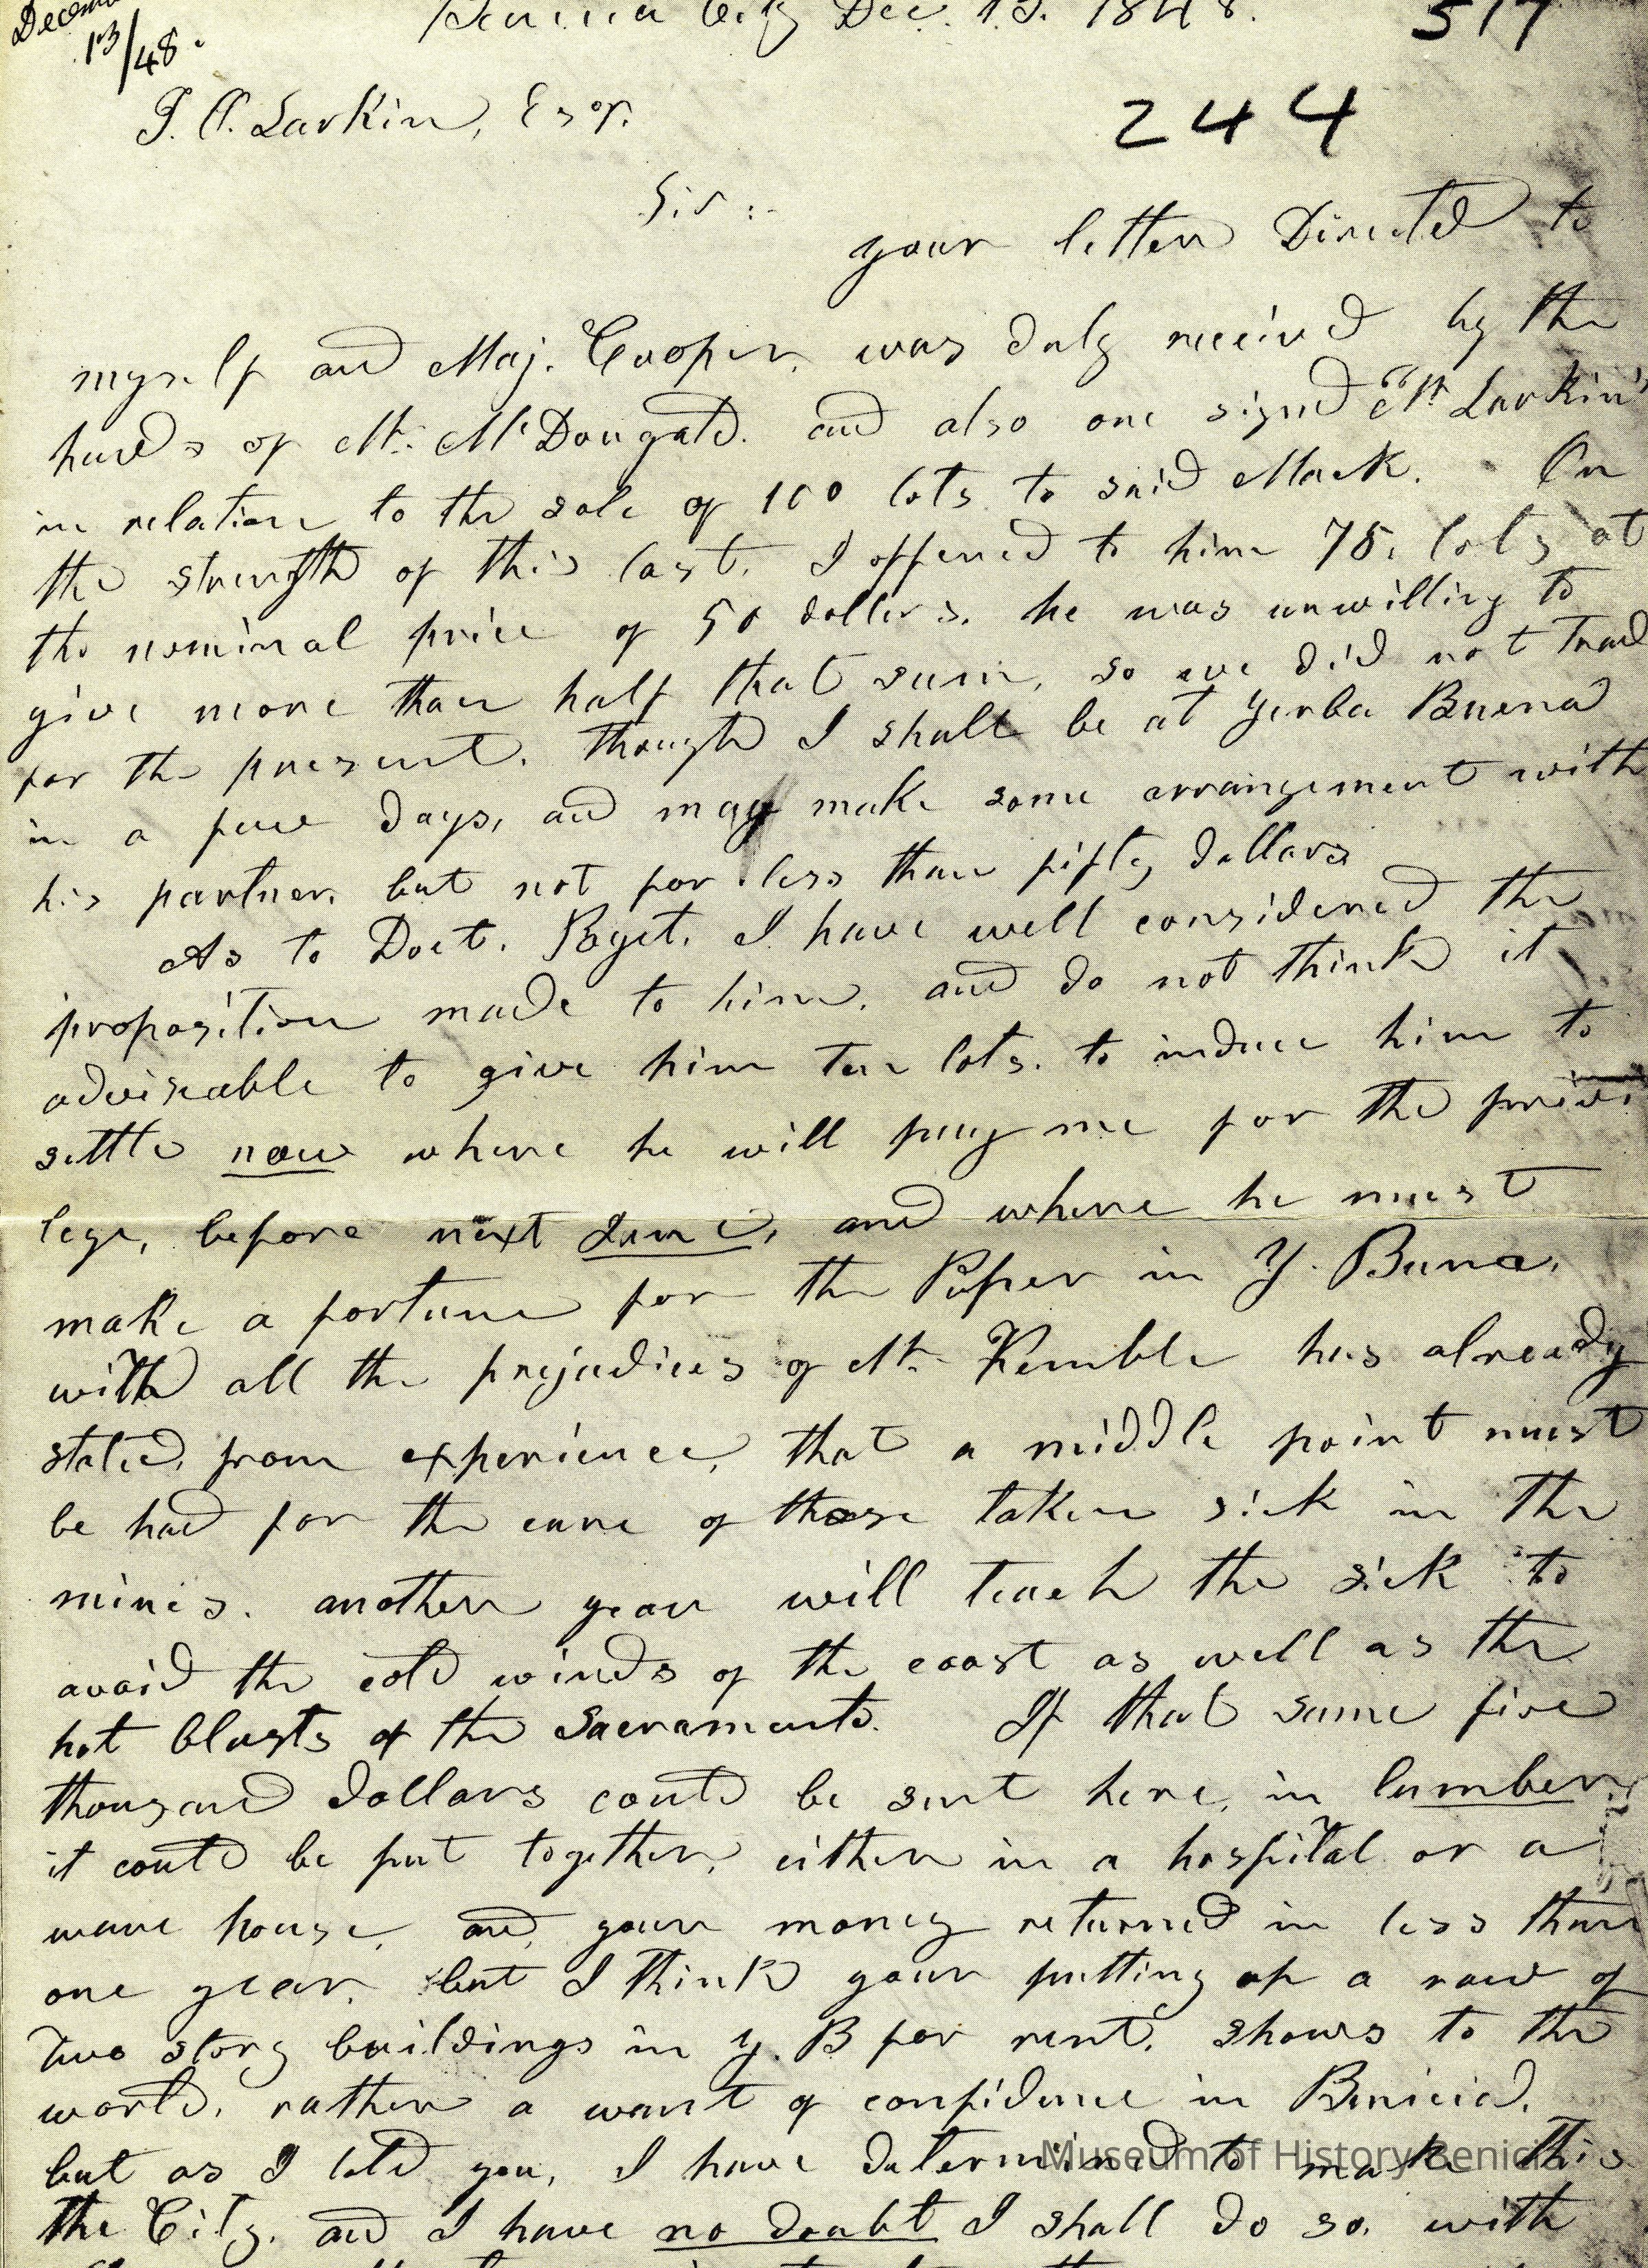 December
13/48.
Benicia City Dec. 13. 1848.
517
244
T. O. Larkin, Esqr.
Sir:-
your letter Directed to
myself and Maj. Cooper, was duly received by the
hands of Mr. McDougald. and also one signed Mr Larkin
in relation to the sale of 100 lots to said Mack. On
the strength of this last, I offered to him 75. lots at
the nominal price of 50 dollers. he was unwilling to
give more than half that sum, so we did not trade
for the present. though I shall be at Yerba Buena
in a few days, and may make some arrangement with
his partner. but not for less than fifty dollars
As to Doct. Poget. I have well considered the
proposition made to him. and do not think it
adviseable to give him ten lots. to induce him to
settle now where he will pay me for the privi
lege, before next June, and where he must
make a fortune for the Paper in Y. Buna.
with all the prejudices of Mr. Kemble has already
stated, from experience, that a middle point must
be had for the cure of those taken sick in the
mines. another year will teach the sick to
avoid the cold winds of the coast as well as the
hot blasts of the Sacramento. If that same five
thousand dollars could be sent here, in lumber,
it could be put together, either in a hospital or a
ware house, and your money returned in less than
one year. but I think your putting up a row of
two story buildings in Y. B for rent, shows to the
world, rather a want of confidence in Benicia.
but as I told you, I have determined to make this
the City. and I have no doubt I shall do so. with
Museum of History Benicia